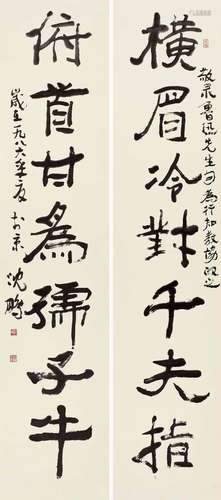 橫眉冷對千夫指
敬录魯迅先生句為行知教協
俯首甘為孺子牛
歲在一九八六年夏
於北京
沈鹏